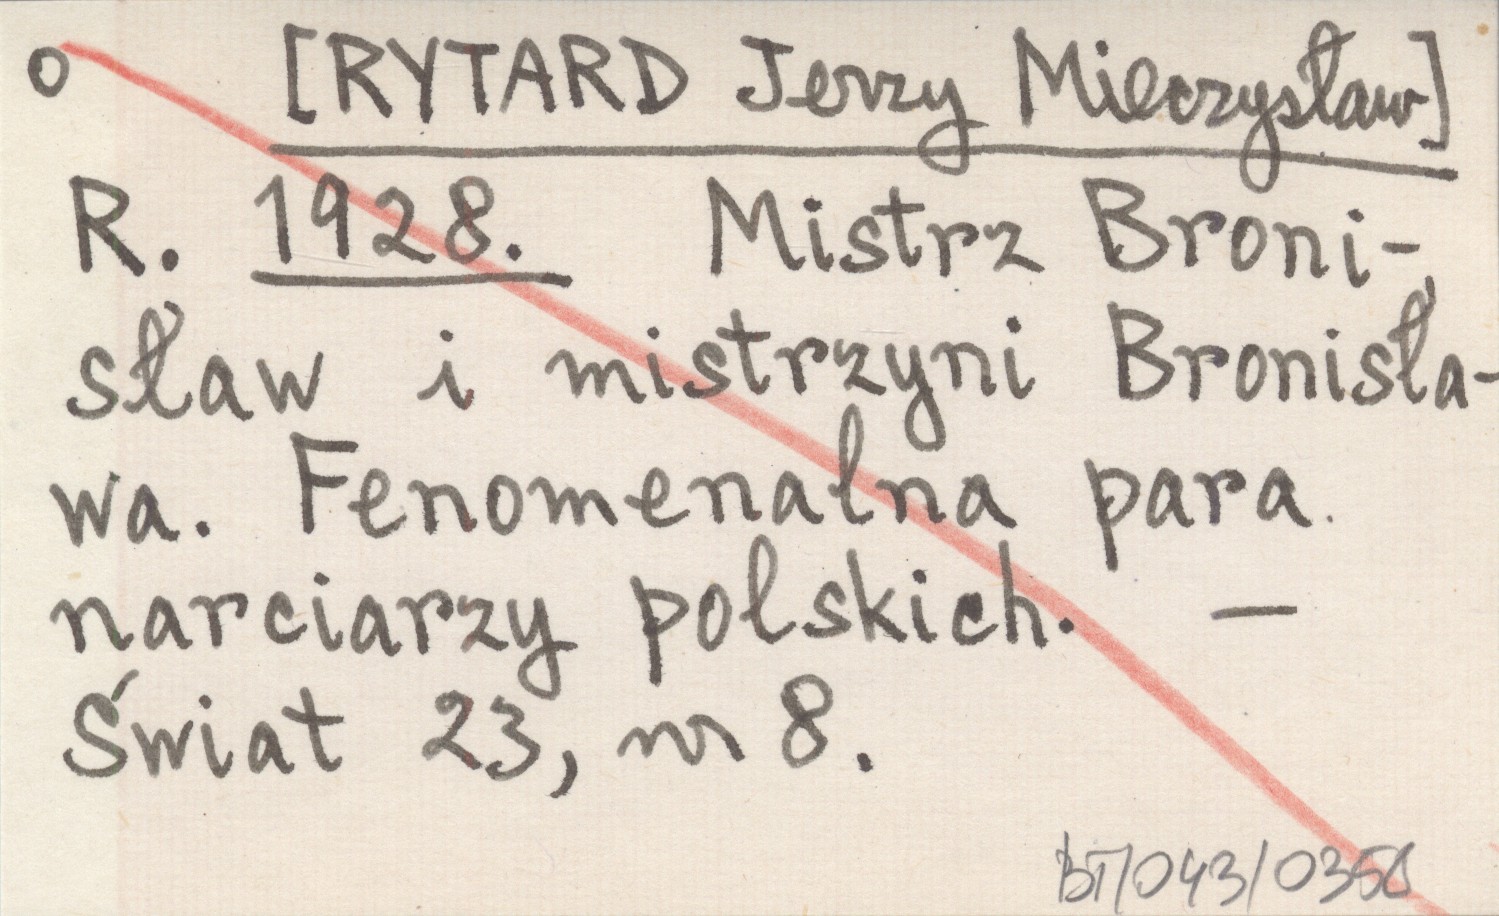 o [RYTARD Jerzy Mieczysław]
R. 1928. Mistrz Broni-
sław i mistrzyni Bronisła-
wa. Fenomenalna para
narciarzy polskich. —
Świat 23, nr 8.
BT/043/0358